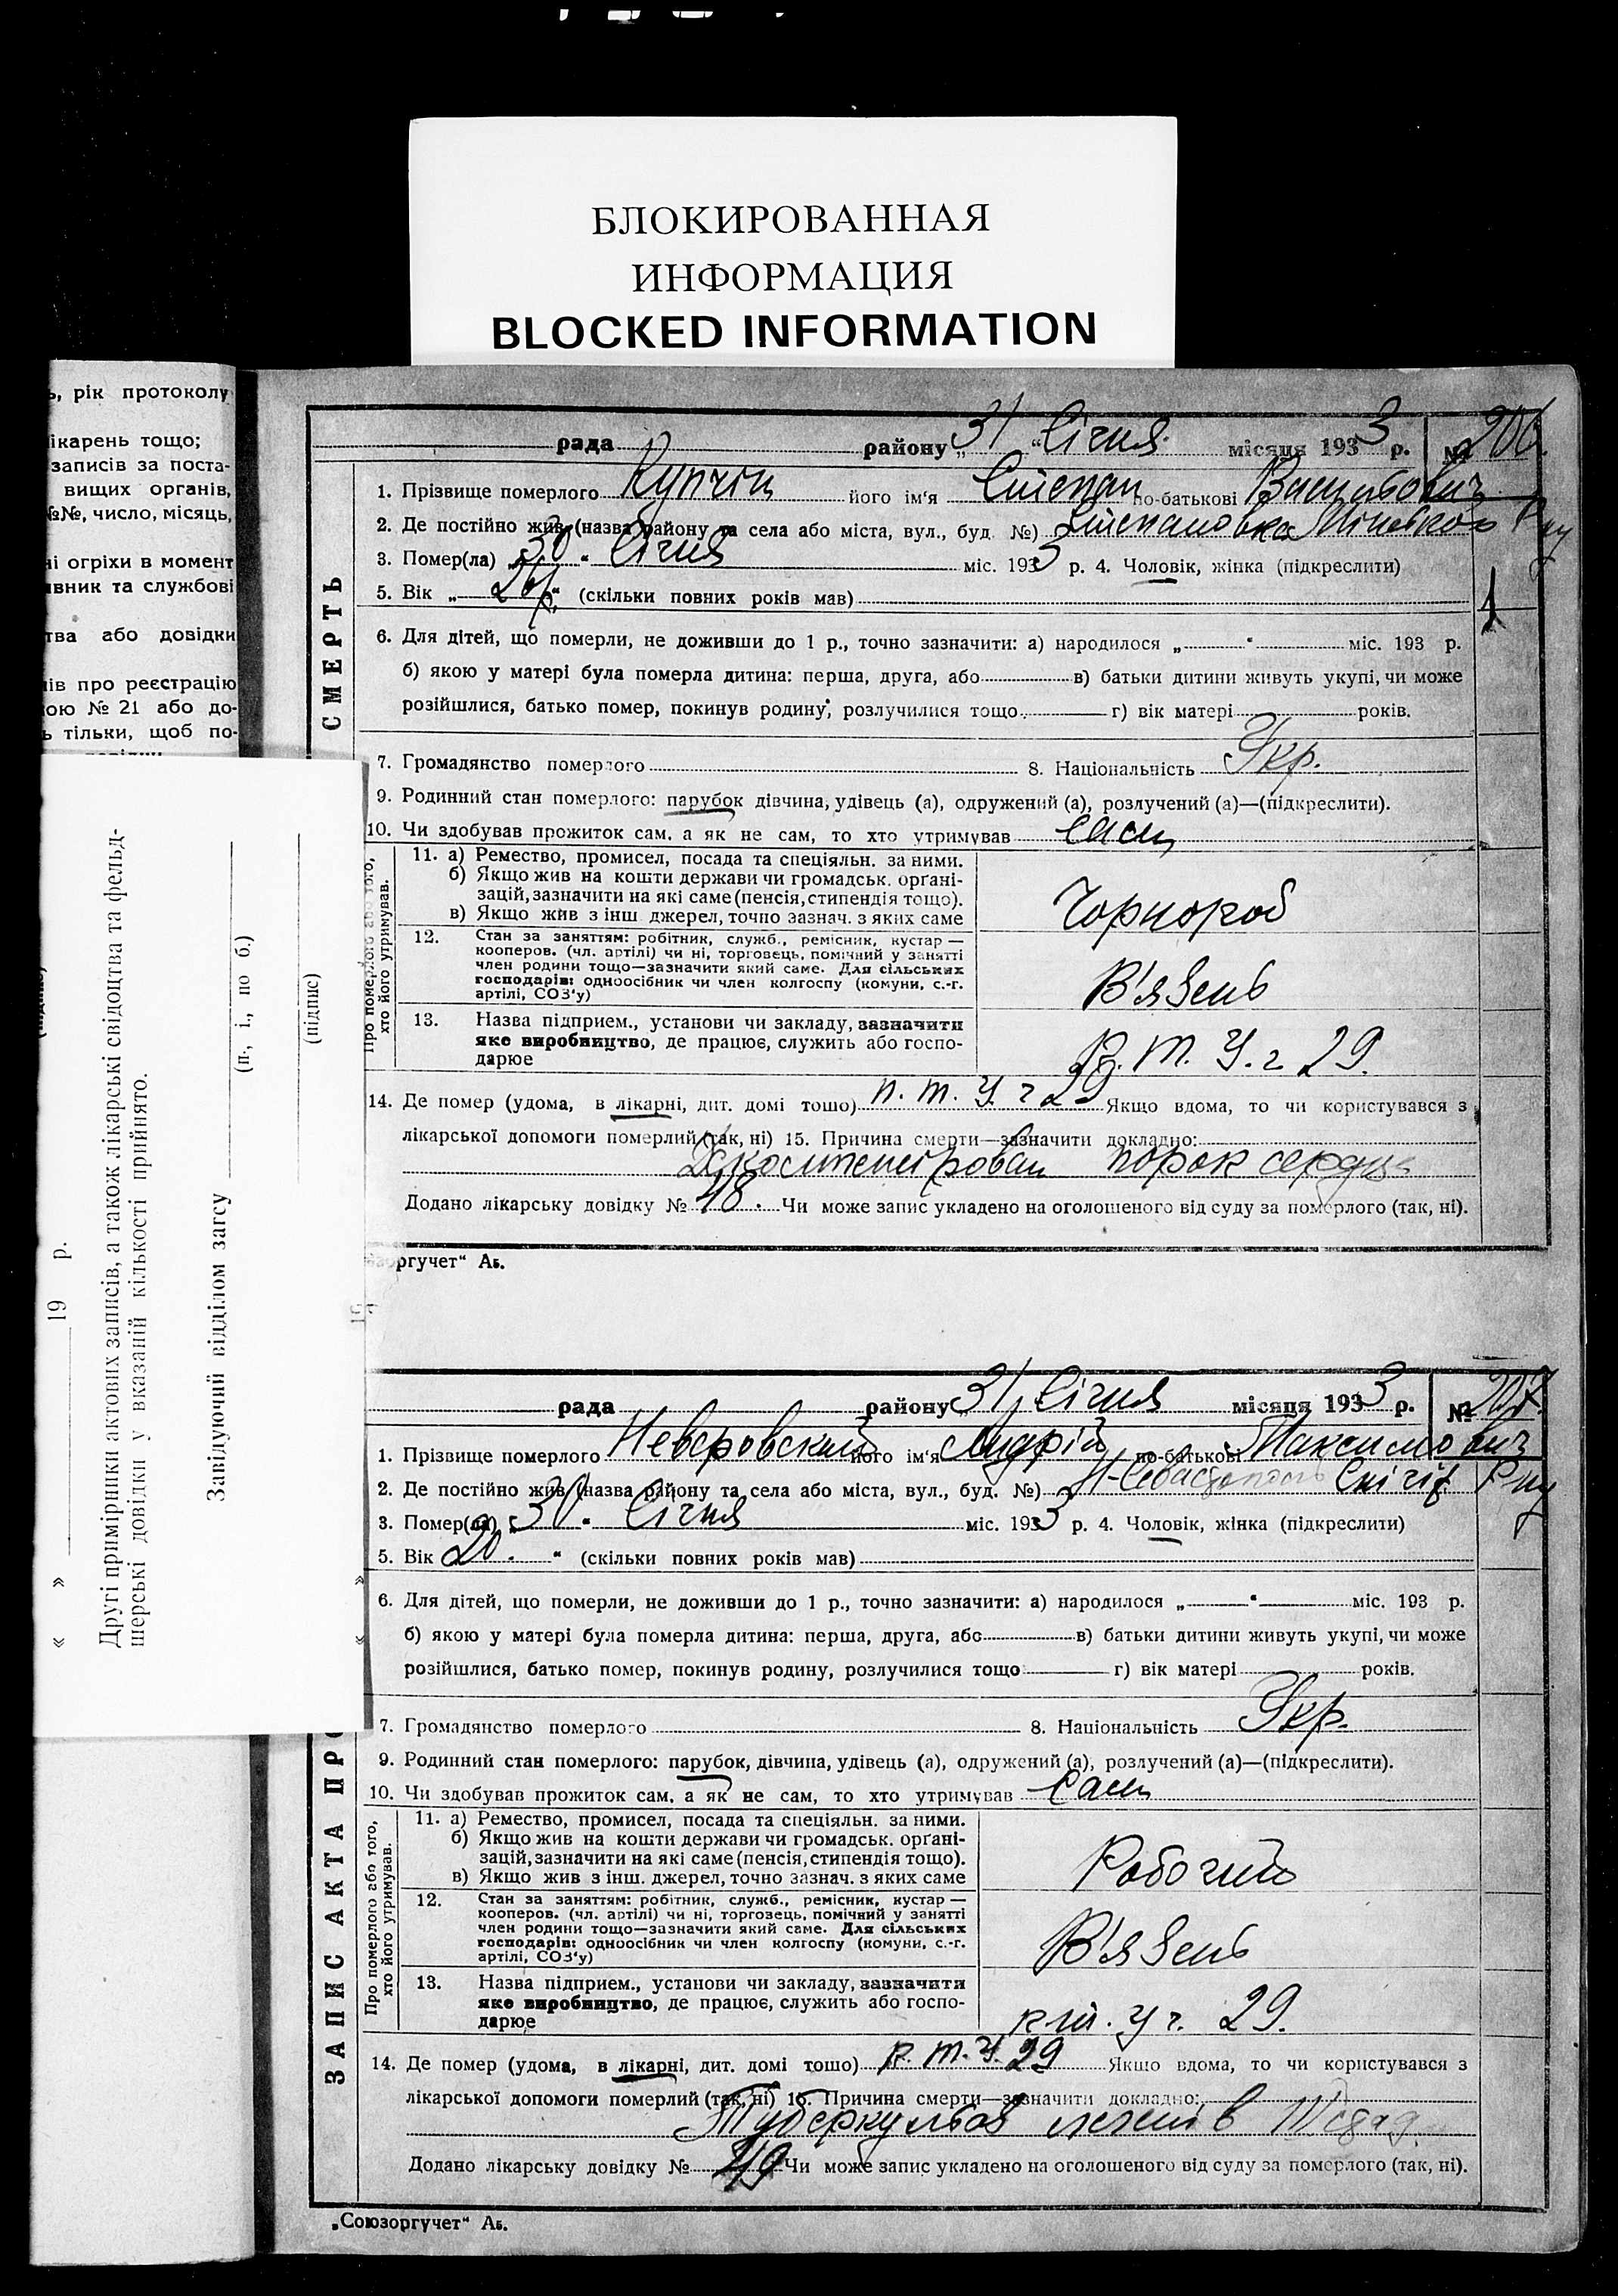 БЛОКИРОВАННАЯ
ИНФОРМАЦИЯ
BLOCKED INFORMATION
рік протоколу
ікарень тощо;
записів за поста-
вищих органів,
№№, число, місяць,
ні огріхи в момент
вник та службові
тва або довідки
ів про реєстрацію
ою № 21 або до-
тільки, щоб по-
« » 19 р.
Другі примірники актових записів, а також лікарські свідоцтва та фельд-
шерські довідки у вказаній кількості прийнято.
Завідуючий відділом загсу
(п., і., по б.)
(підпис)
СМЕРТЬ
рада району „31 “ Січня місяця 1933 р. № 206.
1. Прізвище померлого його ім'я Степан по-батькові
2. Де постійно жив (назва району та села або міста, вул., буд. №) Степановка
3. Помер(ла) „30 “ Січня міс. 1933 р. 4. Чоловік, жінка (підкреслити)
5. Вік „ “ (скільки повних років мав)
6. Для дітей, що померли, не доживши до 1 р., точно зазначити: а) народилося „ “ міс. 193 р.
б) якою у матері була померла дитина: перша, друга, або в) батьки дитини живуть укупі, чи може
розійшлися, батько помер, покинув родину, розлучилися тощо г) вік матері років.
7. Громадянство померлого 8. Національність Укр.
9. Родинний стан померлого: парубок дівчина, удівець (а), одружений (а), розлучений (а)—(підкреслити).
10. Чи здобував прожиток сам, а як не сам, то хто утримував сам
Про померлого або того,
хто його утримував.
11. а) Ремество, промисел, посада та спеціяльн. за ними.
б) Якщо жив на кошти держави чи громадськ. орґані-
зацій, зазначити на які саме (пенсія, стипендія тощо).
в) Якщо жив з інш. джерел, точно зазнач. з яких саме
Чорнороб
12. Стан за заняттям: робітник, служб., ремісник, кустар —
кооперов. (чл. артілі) чи ні, торговець, помічний у занятті
член родини тощо—зазначити який саме. Для сільських
господарів: одноосібник чи член колгоспу (комуни, с.-г.
артілі, СОЗ'у)
В'язень
13. Назва підприєм., установи чи закладу, зазначити
яке виробництво, де працює, служить або госпо-
дарює
29.
14. Де помер (удома, в лікарні, дит. домі тощо) 29 Якщо вдома, то чи користувався з
лікарської допомоги померлий (так, ні) 15. Причина смерти—зазначити докладно:
порок сердца
Додано лікарську довідку № 48. Чи може запис укладено на оголошеного від суду за померлого (так, ні).
оргучет“ Аб.
ЗАПИС АКТА ПРО
рада району „31 “ Січня місяця 1933 р. № 207.
1. Прізвище померлого Неверовський його ім'я Андрій по-батькові Максимович
2. Де постійно жив (назва району та села або міста, вул., буд. №) Снігір
3. Помер(ла) „30 “ Січня міс. 1933 р. 4. Чоловік, жінка (підкреслити)
5. Вік 20. “ (скільки повних років мав)
6. Для дітей, що померли, не доживши до 1 р., точно зазначити: а) народилося „ “ міс. 193 р.
б) якою у матері була померла дитина: перша, друга, або в) батьки дитини живуть укупі, чи може
розійшлися, батько помер, покинув родину, розлучилися тощо г) вік матері років.
7. Громадянство померлого 8. Національність Укр.
9. Родинний стан померлого: парубок, дівчина, удівець (а), одружений (а), розлучений (а)—(підкреслити).
10. Чи здобував прожиток сам, а як не сам, то хто утримував Сам
Про померлого або того,
хто його утримував.
11. а) Ремество, промисел, посада та спеціяльн. за ними.
б) Якщо жив на кошти держави чи громадськ. орґані-
зацій, зазначити на які саме (пенсія, стипендія тощо).
в) Якщо жив з інш. джерел, точно зазнач. з яких саме
Робочий
12. Стан за заняттям: робітник, служб., ремісник, кустар —
кооперов. (чл. артілі) чи ні, торговець, помічний у занятті
член родини тощо—зазначити який саме. Для сільських
господарів: одноосібник чи член колгоспу (комуни, с.-г.
артілі, СОЗ'у)
В'язень
13. Назва підприєм., установи чи закладу, зазначити
яке виробництво, де працює, служить або госпо-
дарює
29.
14. Де помер (удома, в лікарні, дит. домі тощо) 29 Якщо вдома, то чи користувався з
лікарської допомоги померлий (так, ні) 15. Причина смерти—зазначити докладно:
Туберкульоз легенів
Додано лікарську довідку № 49 Чи може запис укладено на оголошеного від суду за померлого (так, ні).
„Союзоргучет“ Аб.